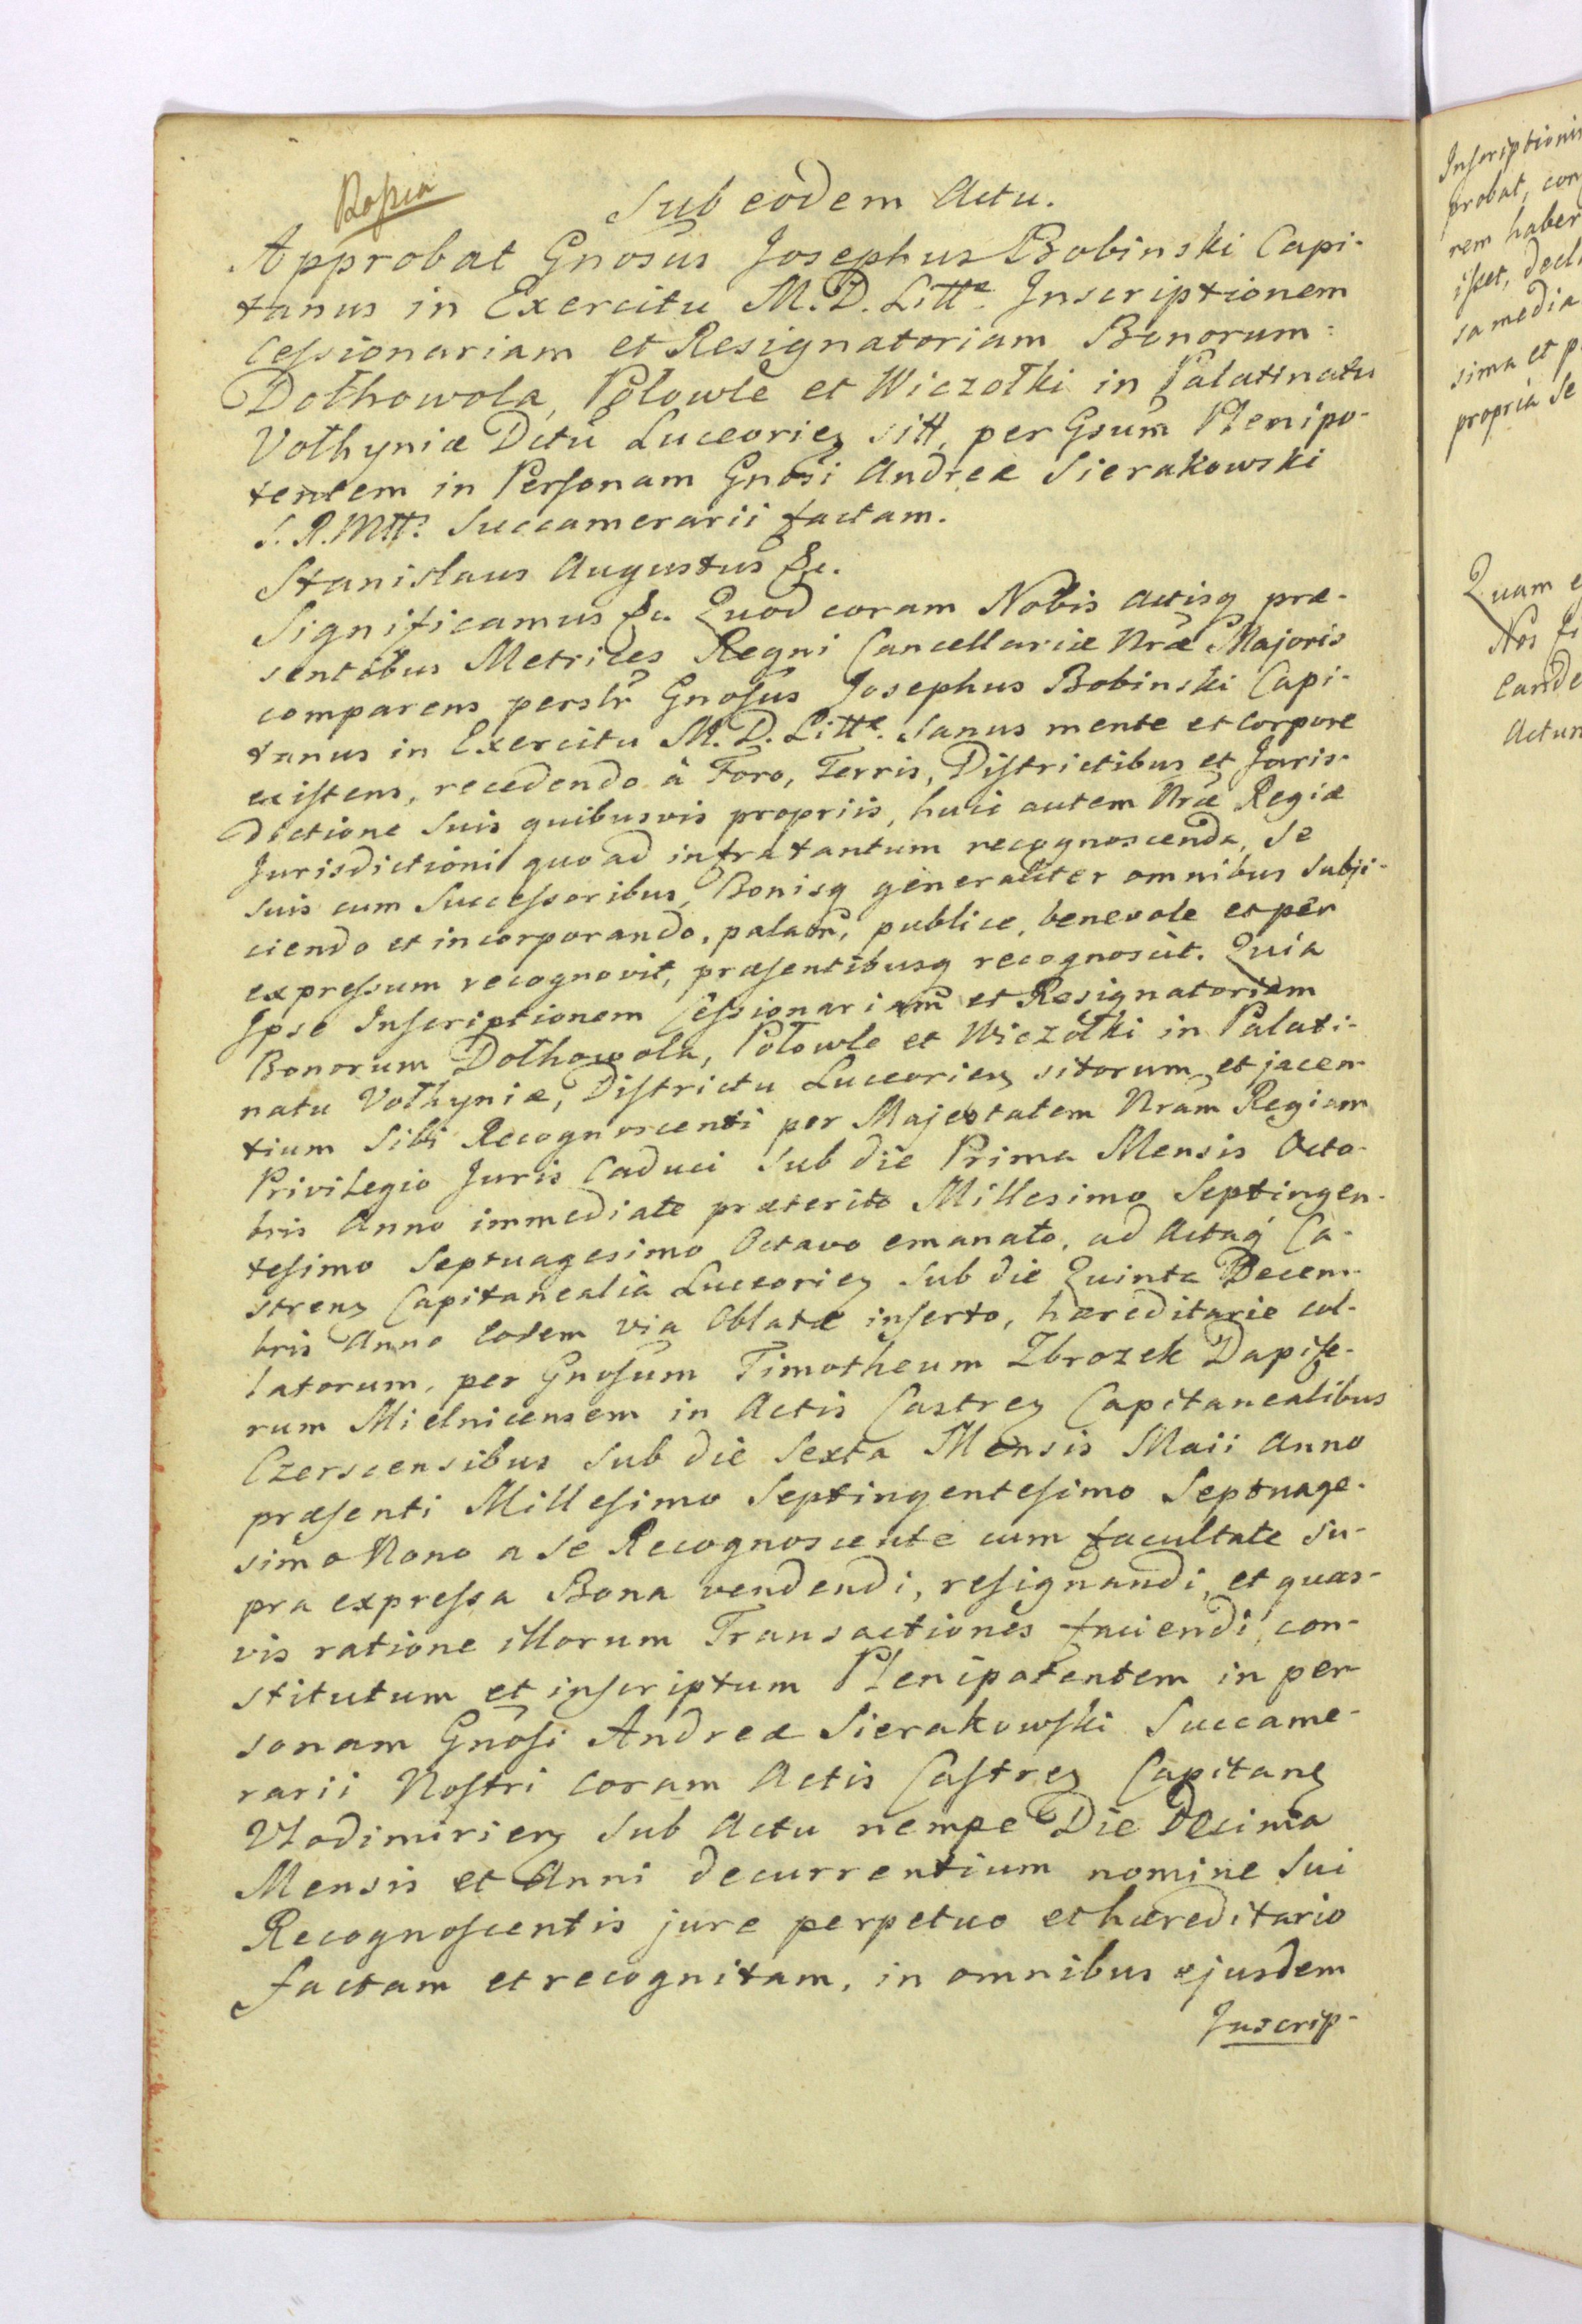 Sub eodem Actu.
Approbat Gnosus Josephus Bobinski Capi-
tanus in Exercitu M. D. Littᵉ. Inscriptionem
Cessionariam et Resignatoriam Bonorum
Dołhowola, Połowle et Wiczołki in Palatinatu
Vołhyniæ Dctû Luceorien sitt, per Gsum Plenipo-
tentem in Personam Gnosi Andreæ Sierakowski
S. R. Mtt. Succamerarii factam.
Stanislaus Augustus &c.
Significamus &c. Quod coram Nobis actisq præ-
sentibus Metrices Regni Cancellariæ Nræ Majoris
comparens perslr Gnosus Josephus Bobinski Capi-
tanus in Exercitu M. D. Littᵉ. Sanus mente et Corpore
existens, recedendo â Foro, Terris, Districtibus et Juris-
dictione Suis quibusvis propriis, huic autem Nræ Regiæ
Jurisdictioni quo ad infra tantum recognoscenda, Se
suis cum Successoribus, Bonisq generaliter omnibus Subji-
ciendo et incorporando, palam, publice, benevole et per
expressum recognovit, præsentibusq recognoscit. Quia
Ipse Inscriptionem Cessionariam et Resignatoriam
Bonorum Dołhowola, Połowle et Wiczołki in Palati-
natu Vołhyniæ, Districtu Luceorien sitorum et jacen-
tium Sibi Recognoscenti per Majestatem Nram Regiam
Privilegio Juris Caduci Sub die Prima Mensis Octo-
bris Anno immediate præterito Millesimo Septingen-
tesimo Septuagesimo Octavo emanato, ad Actaq Ca-
stren Capitanealia Luceorien Sub die Quinta Decem-
bris Anno eodem via Oblatæ inserto, hæreditarie col-
latorum, per Gnosum Timotheum Zbrozek Dapife-
rum Mielnicensem in Actis Castren Capitanealibus
Czerscensibus Sub die Sexta Mensis Maii Anno
præsenti Millesimo Septingentesimo Septuage-
simo Nono a se Recognoscente cum facultate Su-
pra expressa Bona vendendi, resignandi, et quas-
vis ratione illorum Transactiones faciendi, con-
stitutum et inscriptum Plenipotentem in per-
sonam Gnosi Andreæ Sierakowski Succame-
rarii Nostri Coram Actis Castren Capitan
Vlodimirien Sub Actu nempe Die Decima
Mensis et Anni decurrentium nomine Sui
Recognoscentis jure perpetuo et hæreditario
factam et recognitam, in omnibus ejusdem
Inscrip-
Inscriptionis
probat, con
rem haber
isset, decl
sa media
sima et p
propria Se
Quam e
Nos
Eande
Actum